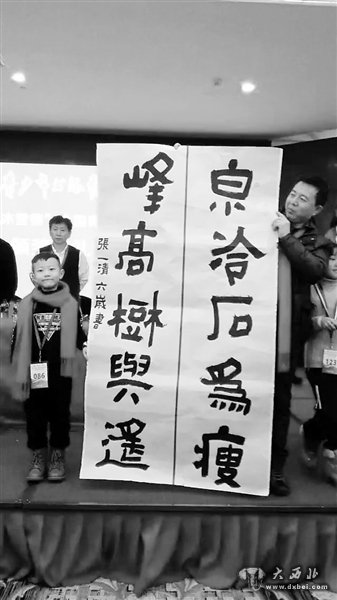 泉冷石爲瘦
峰高樹與遙
張一清六歲書
086
大西北
www.dxbei.com